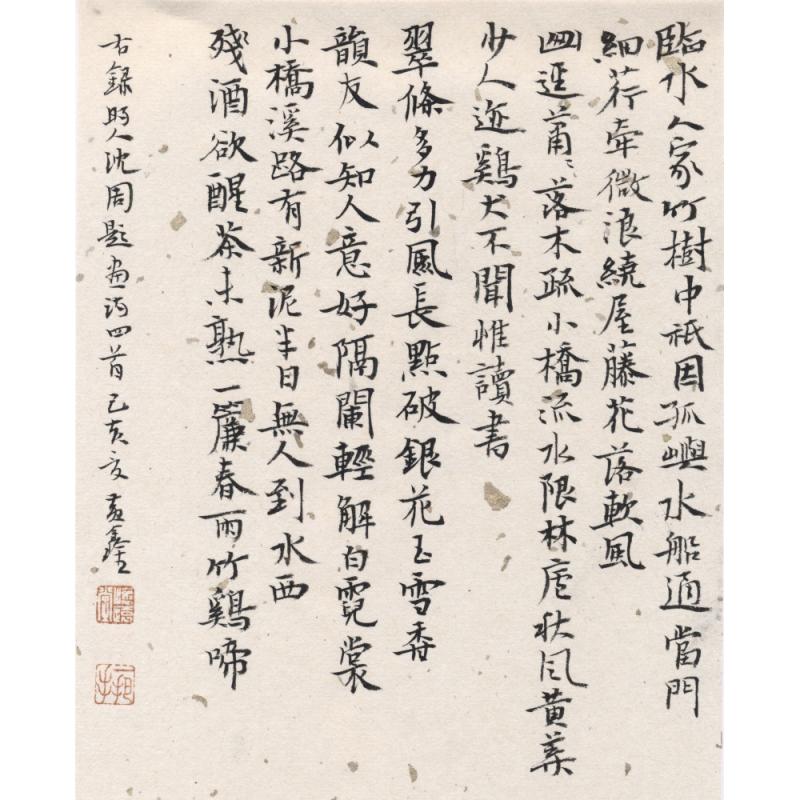 臨水人家竹樹中祇因孤嶼水船通當門
細荇牽微浪繞屋藤花落軟風
幽逕蕭〻落木疏小橋流水限林廬秋風黃葉
少人迹鷄犬不聞惟讀書
翠條多力引風長點破銀花玉雪香
韻友似知人意好隔闌輕解白霓裳
小橋溪路有新泥半日無人到水西
殘酒欲醒茶未熟一簾春雨竹鷄啼
右錄明人沈周題畫詩四首己亥夏鑫